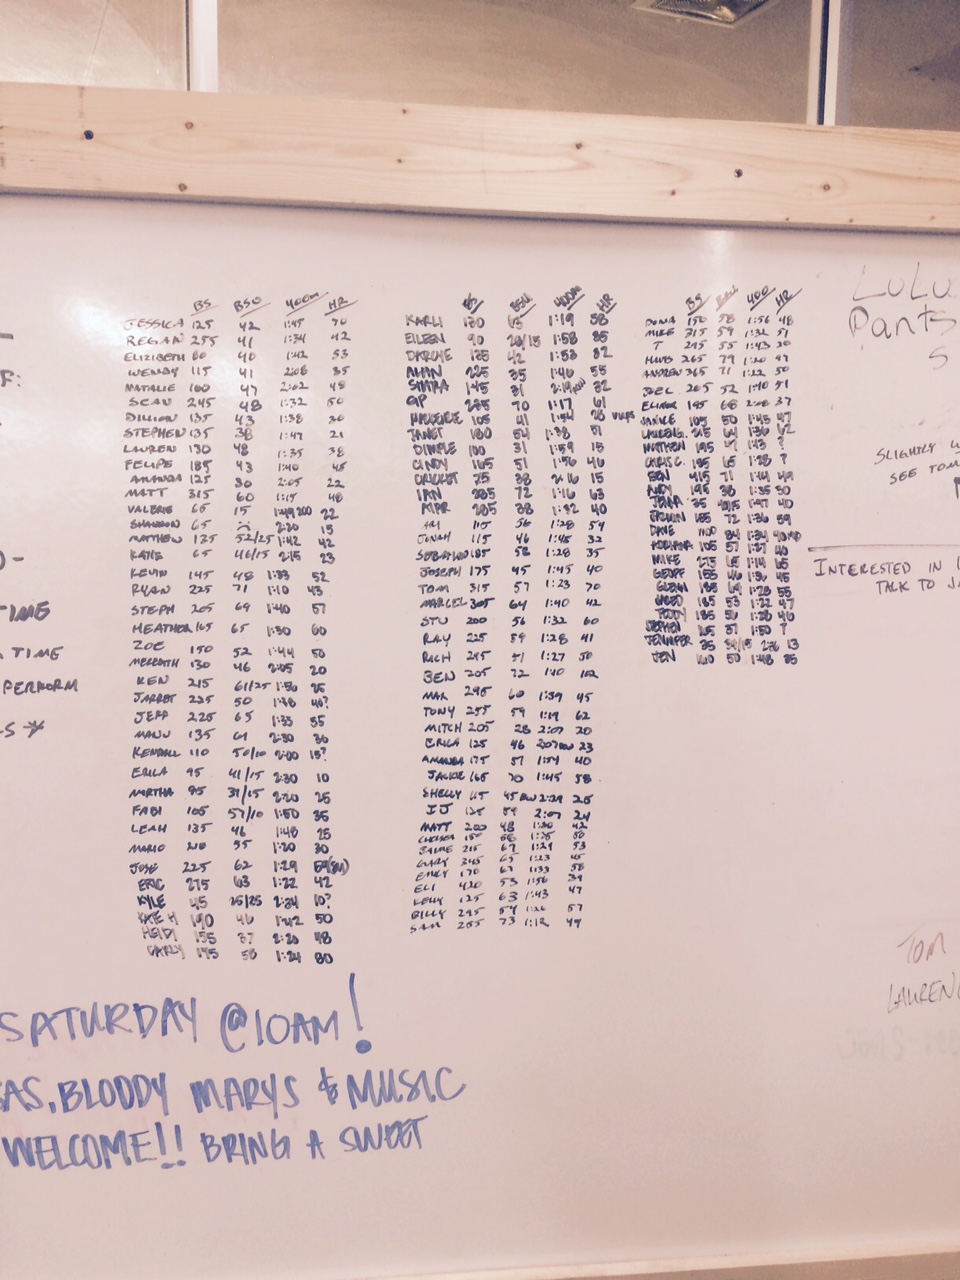 BS BSU 400m HR
JESSICA 125 42 1:45 70
REGAN 255 41 1:34 42
ELIZIBETH 80 40 1:42 53
WENDY 115 41 2:08 35
NATALIE 100 47 2:02 48
SEAN 245 48 1:32 50
DILLON 135 43 1:38 30
STEPHEN 135 38 1:47 21
LAUREN 130 48 1:35 38
FELIPE 185 43 1:40 45
AMANDA 125 30 2:05 22
MATT 315 60 1:17 48
VALERIE 65 15 22
SHANNON 65 2:20 15
MATTHEW 125 52/25 1:42 42
KATIE 65 46/15 2:15 23
KEVIN 145 48 1:33 52
RYAN 225 71 1:10 43
STEPH 205 69 1:40 57
HEATHER 165 65 1:30 60
ZOE 150 52 1:44 50
MEREDITH 130 46 2:05 20
KEN 215 61/25 1:56 25
JARRET 225 50 1:48 40?
JEFF 225 65 1:33 55
MANU 135 61 2:30 30
KENDALL 110 50/10 2:00 15?
ERICA 95 41/15 2:30 10
MARTHA 95 37/15 2:20 25
FABI 105 57/10 1:50 35
LEAH 135 46 1:48 25
MARIO 210 55 1:20 30
JOSE 225 62 1:29
ERIC 275 63 1:22 42
KYLE 45 25/25 2:34 10?
KATE H 190 46 1:42 50
HEIDI 155 37 2:20 48
CARLY 175 58 1:24 80
BS BSU 400m HR
KARLI 130 1:19 58
EILEEN 90 20/15 1:58 35
DARCYE 135 42 1:53 32
ALAN 225 35 1:46 55
145 31 32
GP 70 1:17 61
105 41
JANET 180 54 1:38 51
DIMPLE 100 31 1:59 15
CINDY 165 51 1:56 46
CRICKET 75 38 2:16 15
IAN 285 72 1:16 63
285 38 1:32 40
ARI 115 56 1:28 54
JONAH 115 46 1:45 32
185 58 1:28 35
JOSEPH 175 45 1:45 40
TOM 315 57 1:23 70
MARCEL 305 64 1:40 42
STU 200 56 1:32 60
RAY 225 59 1:28 41
RICH 245 51 1:27 50
BEN 205 72 1:10 102
MAX 295 60 1:39 45
TONY 255 59 1:19 62
MITCH 205 28 2:07 20
ERICA 125 46 23
AMANDA 175 57 1:54 40
JACKIE 165 70 1:45 58
SHELLY 45 2:29 25
IJ 125 59 2:07 24
MATT 200 48 1:30 42
CHELSEA
JAIME 215 67 1:29 53
GARY 345 65 1:23 45
EMILY 170 67 1:33 58
ELI 420 53 1:56 39
KELLY 125 63 1:43 47
BILLY 295 54 1:26 57
SAM 255 73 1:12 49
BS 400 HR
DONA 150 58 1:56 48
MIKE 315 59 1:32 51
T 215 55 1:43 20
265 79 1:20 47
ANDREW 365 71 1:22 50
JOEL 265 52 1:40 51
195 68 37
JANICE 105 50 1:45 47
215 64 1:36 62
MATTHEW 195 47 1:43 ?
CHRIS C. 185 65 1:28 ?
BEN 415 71 1:44 49
ANDY 195 38 1:35 50
JENNA 35 40
185 72 1:36 59
DAVE
ADRIANA 105 57 1:27
MIKE 275 65 1:14 65
GEOFF 155 46 1:36 45
GLENN 185 64 1:28 55
185 53 1:22 47
TEDDY 185 50 1:28 46
STEPHEN 165 37 1:50 ?
JENNIFER 35 13
JEN 160 50 1:48 35
F:
TIME
TIME
PERFORM
S *
LULU
Pants
S
SLIGHTLY
SEE TOM
INTERESTED IN
TALK TO JA
TOM
LAUREN
SATURDAY @10AM!
AS, BLODDY MARYS & MUSIC
WELCOME!! BRING A SWEET